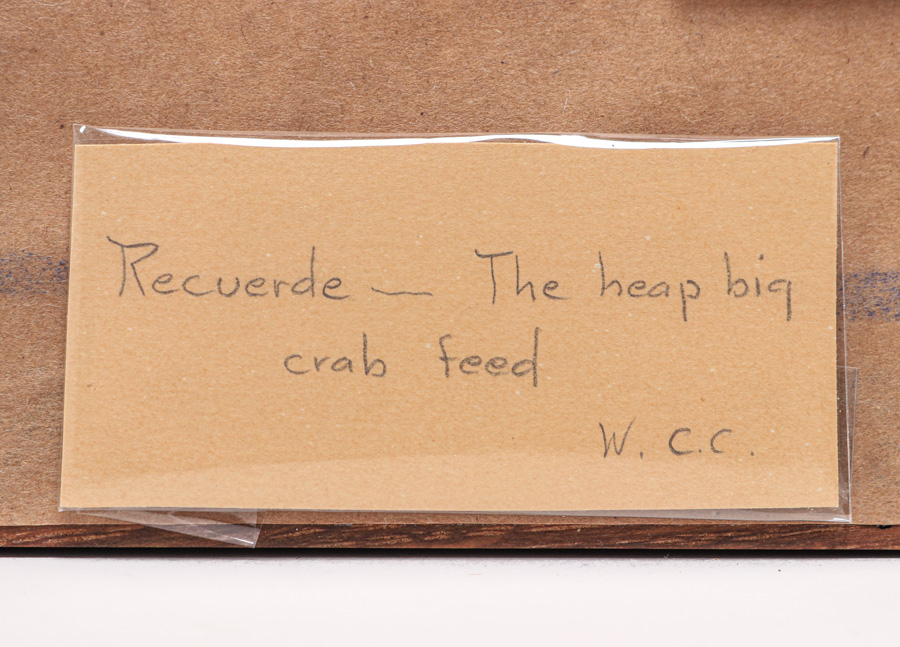 Recuerde — The heap big
crab feed
W. C.C.